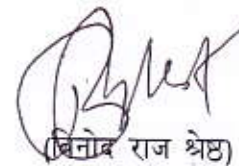 (बिनोद राज श्रेष्ठ)